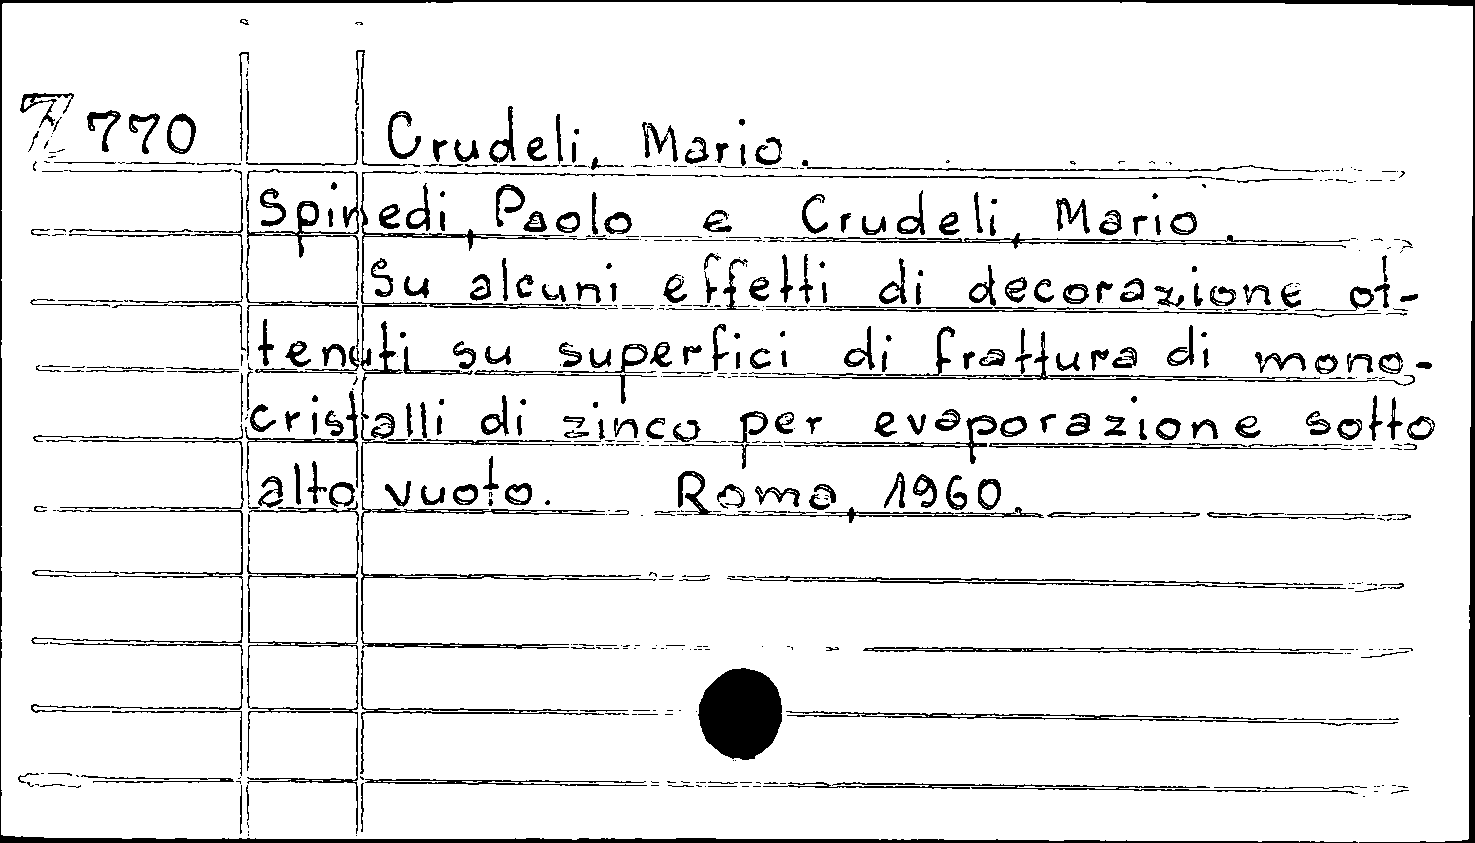 Z 770 Crudeli, Mario.
Spinedi, Paolo e Crudeli, Mario.
Su alcuni effetti di decorazione ot-
tenuti su superfici di frattura di mono-
cristalli di zinco per evaporazione sotto
alto vuoto. Roma, 1960.